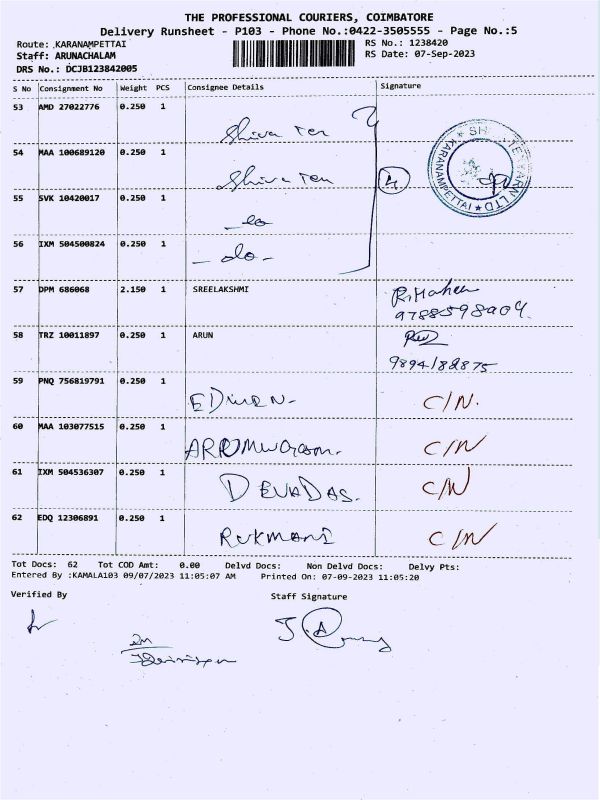 THE PROFESSIONAL COURIERS, COIMBATORE
Delivery Runsheet - P103 - Phone No.:0422-3505555 - Page No.:5
Route: KARANAMPETTAI RS No.: 1238420
Staff: ARUNACHALAM RS Date: 07-Sep-2023
DRS No.: DCJB123842005
S No Consignment No Weight PCS Consignee Details Signature
53 AMD 27022776 0.250 1
Shiva Tex
54 MAA 100689120 0.250 1
Shiva Tex 4
KARANAMPETTAI
55 SVK 10420017 0.250 1
56 IXM 504500824 0.250 1
- do -
57 DPM 686068 2.150 1 SREELAKSHMI
9788598909
58 TRZ 10011897 0.250 1 ARUN
9894182875
59 PNQ 756819791 0.250 1
C/N.
60 MAA 103077515 0.250 1
C/N
61 IXM 504536307 0.250 1
DEVADAS. C/N
62 EDQ 12306891 0.250 1
RUKMANI C/N
Tot Docs: 62 Tot COD Amt: 0.00 Delvd Docs: Non Delvd Docs: Delvy Pts:
Entered By :KAMALA103 09/07/2023 11:05:07 AM Printed On: 07-09-2023 11:05:20
Verified By Staff Signature